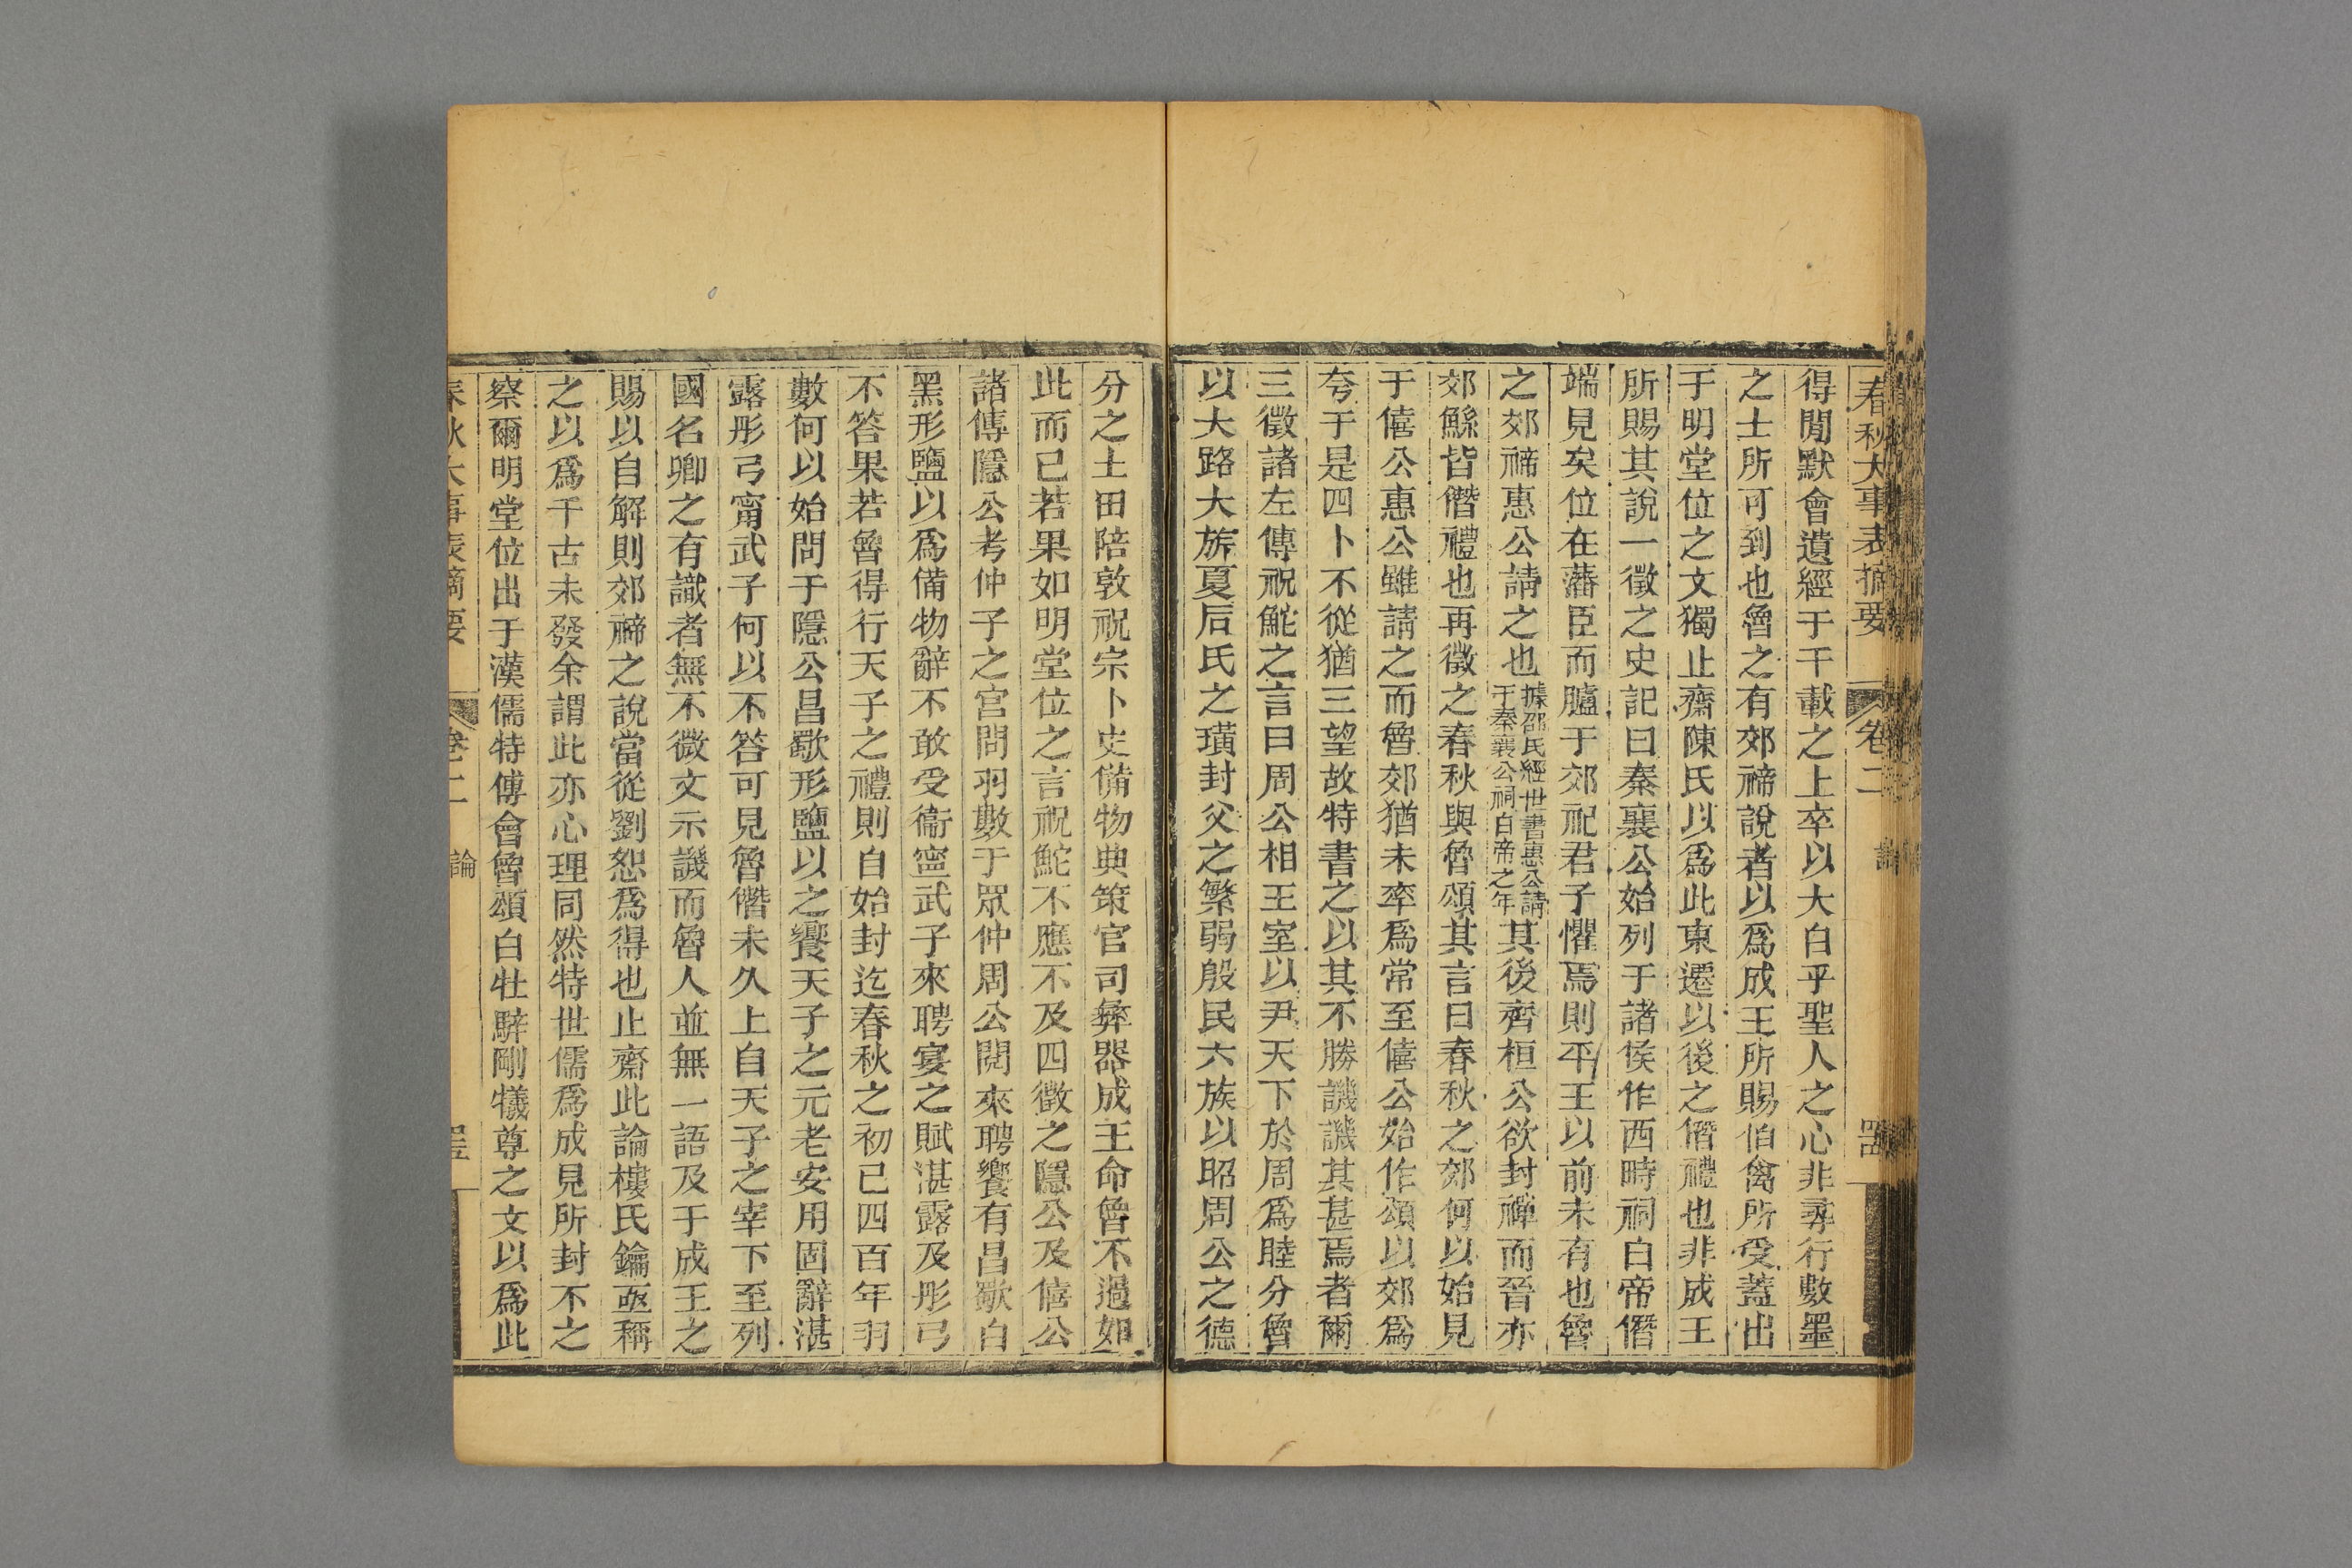 春秋大事表摘要 卷二 論
得閒默會遺經于千載之上卒以大白乎聖人之心非尋行數墨
之士所可到也魯之有郊禘說者以爲成王所賜伯禽所受蓋出
于明堂位之文獨止齋陳氏以爲此東遷以後之僭禮也非成王
所賜其說一徵之史記曰秦襄公始列于諸侯作西畤祠白帝僭
端見矣位在藩臣而臚于郊祀君子懼焉則平王以前未有也魯
之郊禘惠公請之也據邵氏經世書惠公請
于秦襄公祠白帝之年其後齊桓公欲封禪而晉亦
郊鯀皆僭禮也再徵之春秋與魯頌其言曰春秋之郊何以始見
于僖公惠公雖請之而魯郊猶未率爲常至僖公始作頌以郊爲
夸于是四卜不從猶三望故特書之以其不勝譏譏其甚焉者爾
三徵諸左傳祝鮀之言曰周公相王室以尹天下於周爲睦分魯
以大路大旂夏后氏之璜封父之繁弱殷民六族以昭周公之德
分之土田陪敦祝宗卜史備物典策官司彝器成王命魯不過如
此而已若果如明堂位之言祝鮀不應不及四徵之隱公及僖公
諸傳隱公考仲子之宮問羽數于眾仲周公閱來聘饗有昌歜白
黑形鹽以爲備物辭不敢受衞甯武子來聘宴之賦湛露及彤弓
不答果若魯得行天子之禮則自始封迄春秋之初已四百年羽
數何以始問于隱公昌歜形鹽以之饗天子之元老安用固辭湛
露彤弓甯武子何以不答可見魯僭未久上自天子之宰下至列
國名卿之有識者無不微文示譏而魯人並無一語及于成王之
賜以自解則郊禘之說當從劉恕爲得也止齋此論樓氏鑰亟稱
之以爲千古未發余謂此亦心理同然特世儒爲成見所封不之
察爾明堂位出于漢儒特傅會魯頌白牡騂剛犧尊之文以爲此
春秋大事表摘要 卷二 論